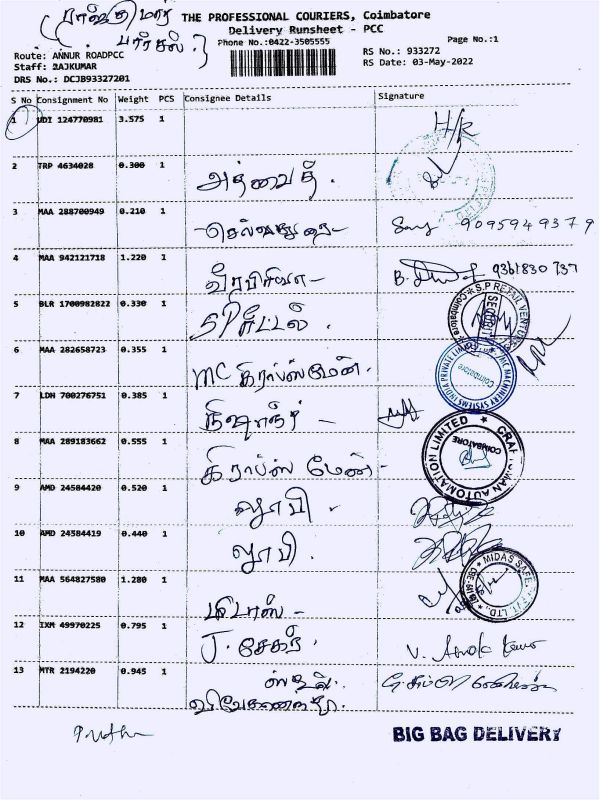 THE PROFESSIONAL COURIERS, Coimbatore
பார்சல்.
Delivery Runsheet - PCC
Phone No.:0422-3505555
Page No.:1
Route: ANNUR ROADPCC
RS No.: 933272
Staff: ZAJKUMAR
RS Date: 03-May-2022
DRS No.: DCJB93327201
S No Consignment No Weight PCS Consignee Details Signature
1 UDI 124770981 3.575 1 H/R
2 TRP 4634028 0.300 1 அத்வைத்.
3 MAA 288700949 0.210 1 9095949379
4 MAA 942121718 1.220 1 9361830737
5 BLR 1700982822 0.330 1 SP ரீட்டல்.
6 MAA 282658723 0.355 1 MC கிராப்ஸ்மேன்.
7 LDH 700276751 0.385 1
8 MAA 289183662 0.555 1 கிராப்ஸ் மேன் -
9 AMD 24584420 0.520 1 ஜூபி.
10 AMD 24584419 0.440 1 ஜூபி.
11 MAA 564827580 1.280 1 மிடாஸ் -
12 IXM 49970225 0.795 1 J. சேகர். V. Ashok
13 MTR 2194220 0.945 1
BIG BAG DELIVERY